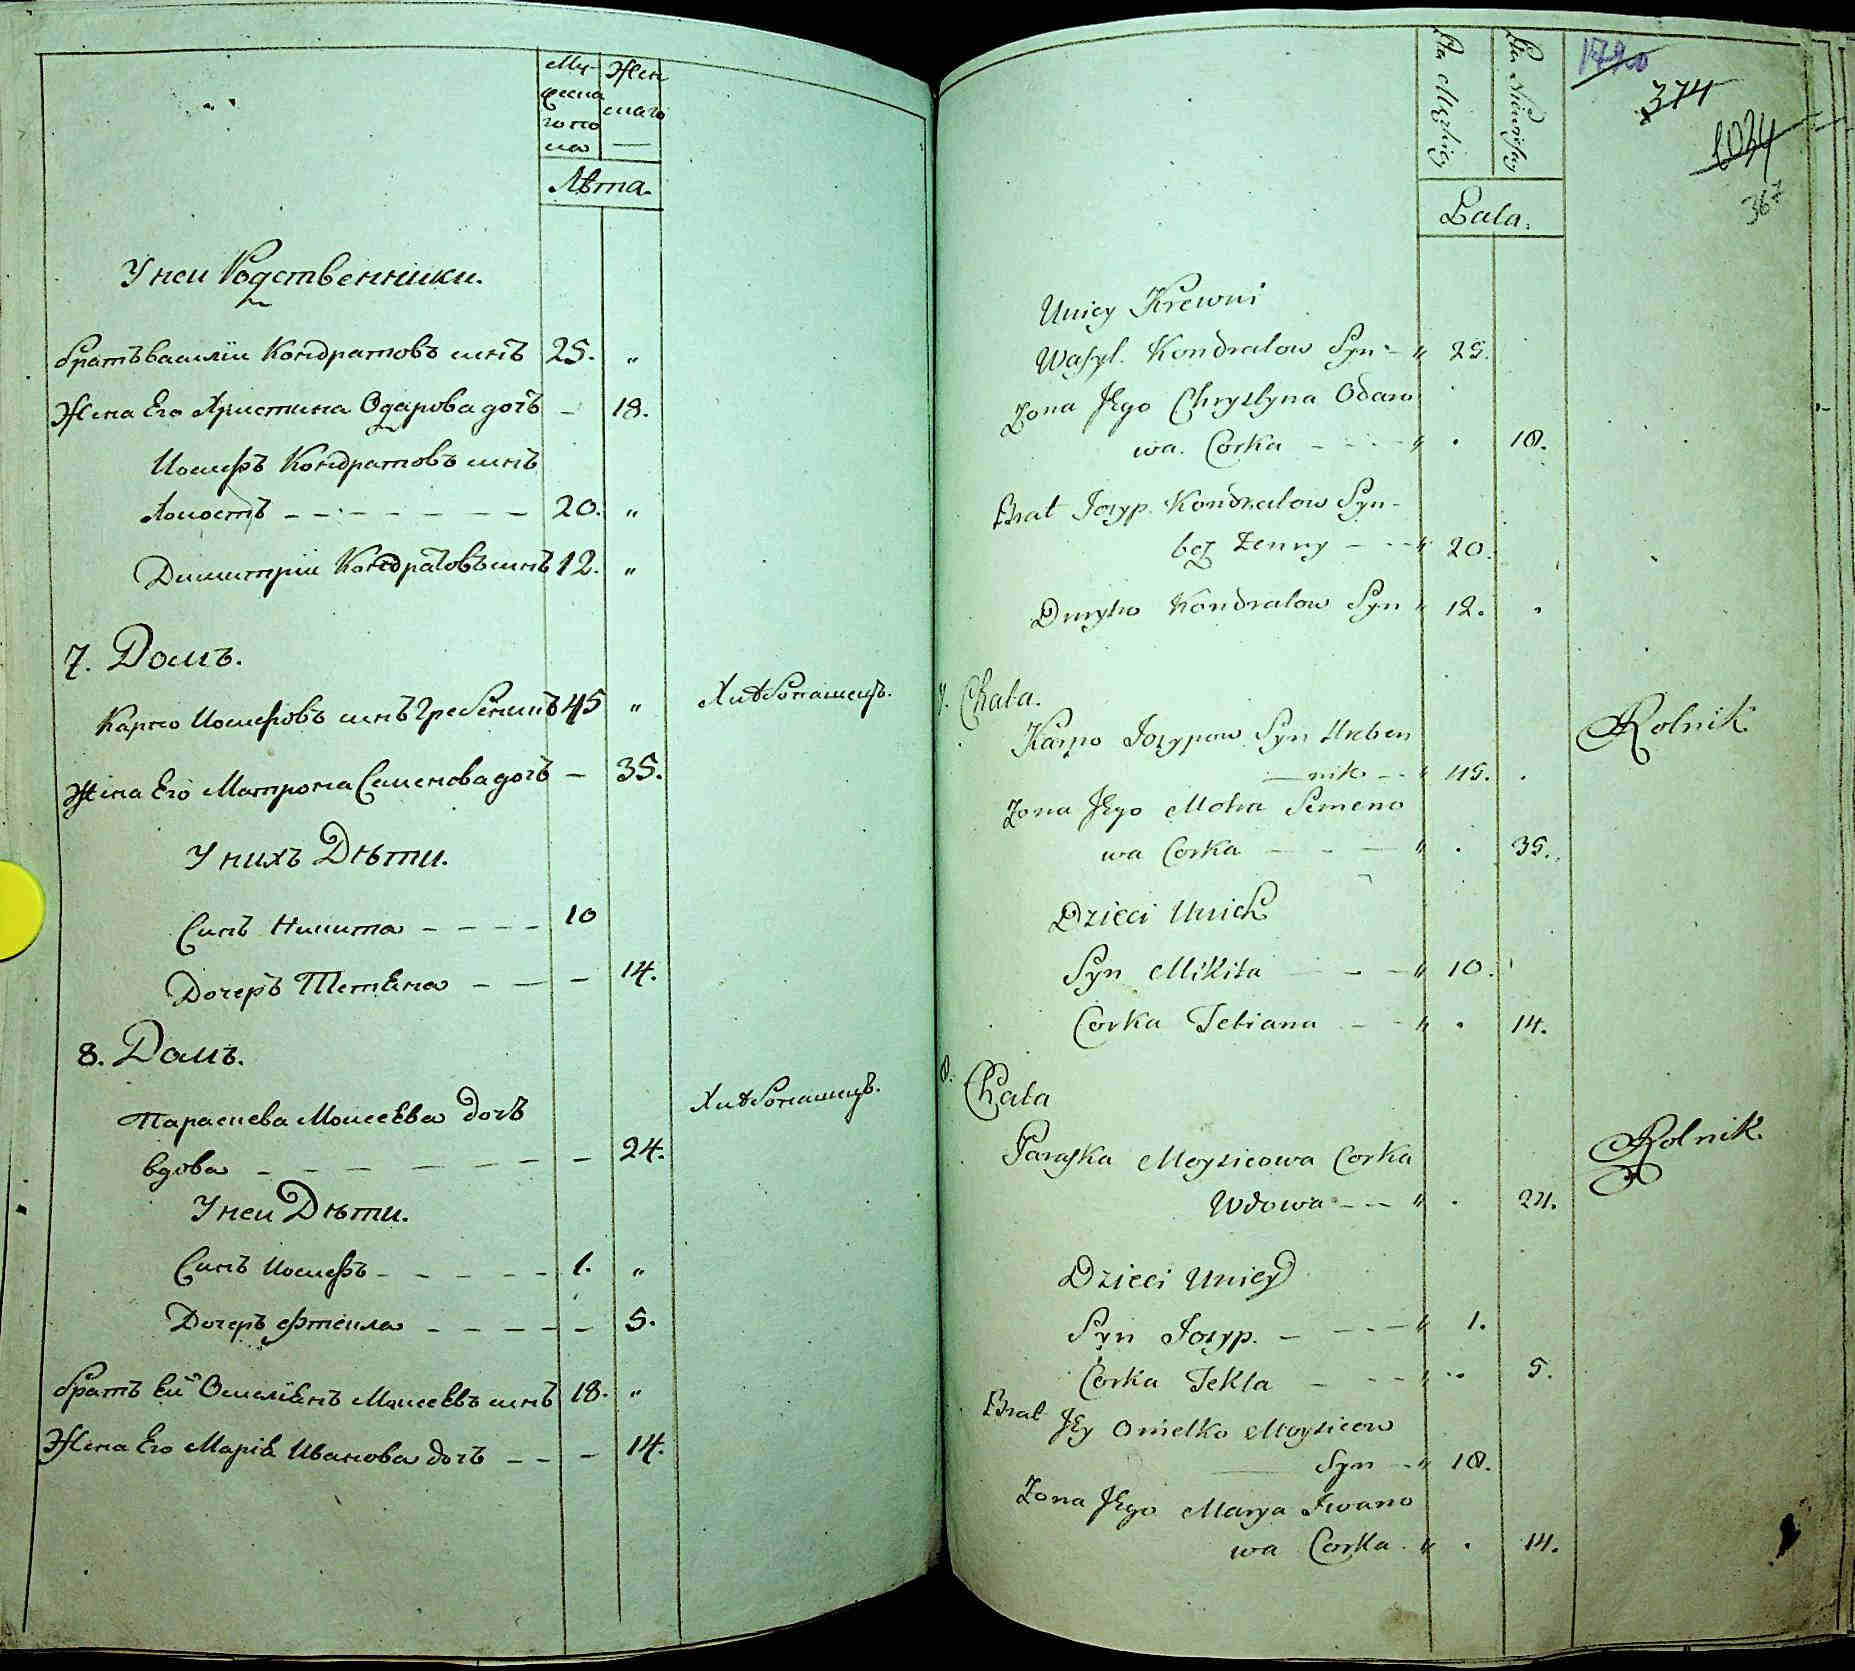 Му-
жеска
го по
ла
Жен
скаго
Лѣта.
У неи Родственники.
братъ василіи Кондратовъ синъ 25. "
Жена Его Христина Одарова дочъ - 18.
Иосифъ Кондратовъ синъ
холостъ - - - - - - - 20. "
Димитріи Кондратовъ синъ 12. "
7. Домъ.
Карпо Иосифовъ синъ Гребенникъ 45 " Хлѣбопашецъ.
Жена Его Матрона Семенова дочъ - 35.
У нихъ Дѣти.
Синъ Никита - - - - 10
Дочеръ Тетіяна - - - 14.
8. Домъ.
Параскева Моисеева дочъ Хлѣбопашецъ.
вдова - - - - - - - 24.
У неи Дѣти.
Синъ Иосифъ - - - - - 1. "
Дочеръ Фтекла - - - - - 5.
братъ Ей Омиліянъ Моисеевъ синъ 18. "
Жена Его Марія Иванова дочъ - - - 14.
Lata.
1720
374
1034
367
Uniey Krewni
Wasyl. Kondratow Syn - " 25.
Zona Jego Chrystyna Odaro
wa. Corka - - - - " . 18.
Brat Jozyp. Kondratow Syn -
bez Zenny - - - " 20.
Dmytro Kondratow Syn " 12. .
7. Chata.
Karpo Jozypow Syn Hreben Rolnik
nik - - " 45. .
Zona Jego Motra Semeno
wa Corka - - - " . 35.
Dzieci Unich
Syn Mikita - - - " 10.
Corka Tetiana - - " . 14.
8. Chata
Paraska Moyzieowa Corka Rolnik.
Wdowa - - - " . 24.
Dzieci Uniey
Syn Jozyp. - - - - " 1.
Corka Tekla - - - " . 5.
Brat Jey Omelko Moyzieow
Syn - " 18.
Zona Jego Marya Iwano
wa Corka. " . 14.